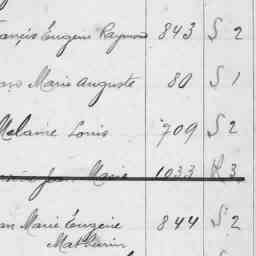 Eugène Raymond 843 S 2
Marie Auguste 80 S 1
Melaine Louis 709 S 2
Jean Marie 1033 R 3
Marie Eugène 844 S 2
Mathurin